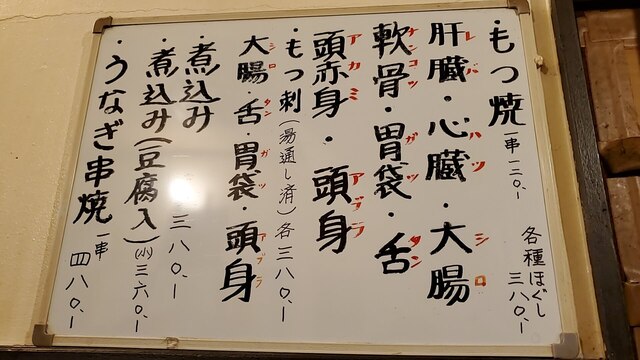 ・もつ焼 一串一二〇.ー
各種ほぐし 三八〇.ー
肝臓・心臓・大腸
レバ ハツ シロ
軟骨・胃袋・舌
ナンコツ ガツ タン
頭赤身・頭身
アカミ アブラ
・もつ刺(湯通し済)各三八〇.ー
大腸・舌・胃袋・頭身
シロ タン ガツ アブラ
・煮込み 三八〇.ー
・煮込み(豆腐入)(小)三六〇.ー
・うなぎ串焼 一串 四八〇.ー